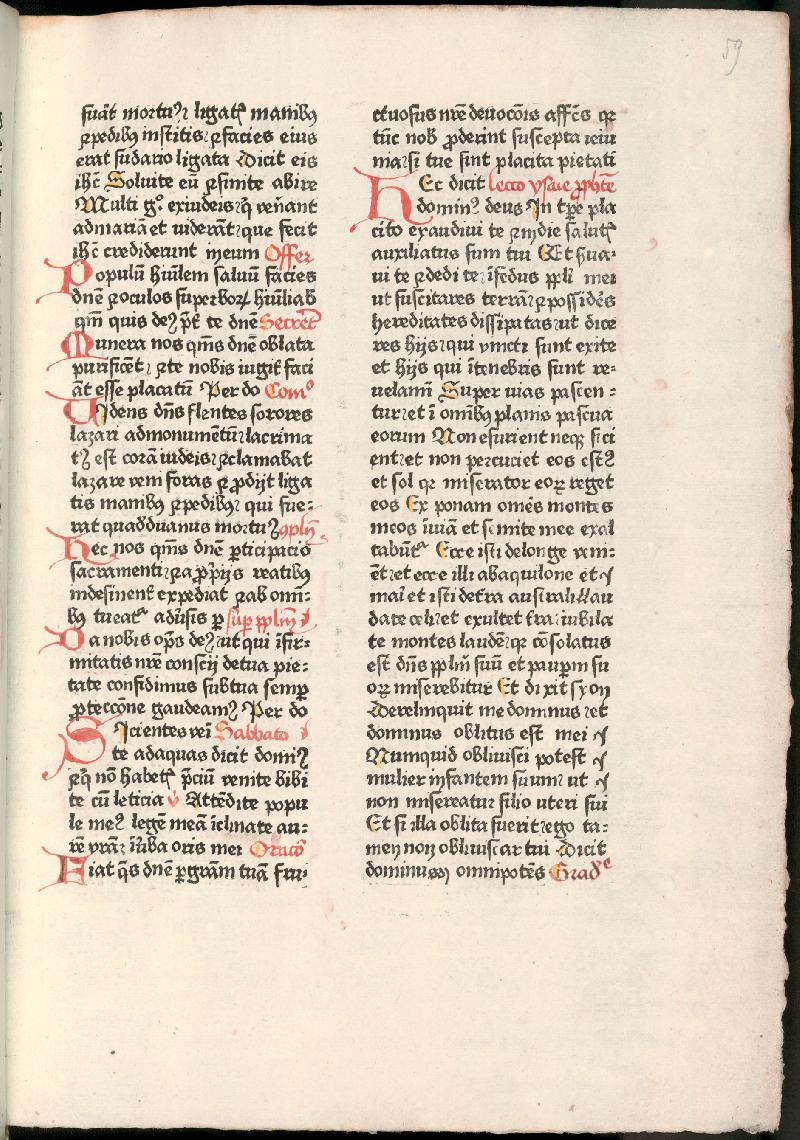 59
fuāt mortuꝰ ligatꝭ manibꝫ
⁊pedibꝫ institis ⁊facies eius
erat sudario ligata Dicit eis
ihc̄ Soluite eū ⁊sinite abire
Multi gͦ exiudeis q̄ ven̄ant
admariā et viderāt que fecit
ihc̄ crediderunt ineum Offer
Populū hūilem saluū facies
dn̄e ⁊oculos superborꝝ hūiliab
qm̄ quis deꝰ p̄t te dn̄e Secret
Munera nos qm̄s dn̄e oblata
purificēt ⁊te nobis iugit̄ faci
āt esse placatū Per do Comͦ
Videns dn̄s flentes sorores
lazari admonumentū lacrima
tꝰ est corā iudeis ⁊clamabat
lazare veni foras ⁊ ꝓdijt liga
tis manibꝫ ⁊pedibꝫ qui fue⸗
rat quadduanus mortuꝰ ꝯpln̄
Hec nos qm̄s dn̄e ꝑticipacio
sacramenti ⁊a ꝓprijs reatibꝫ
indesinent̄ expediat ⁊ab omī⸗
bꝫ tueatᷣ adūsis ꝑ suꝑ pplm̄
Da nobis op̄s deꝰ ut qui īfir⸗
mitatis nr̄e conscij detua pie⸗
tate confidimus subtua semꝑ
ꝓteccōne gaudeamꝰ Per do
Sicientes veī Sabbato
te adaquas dicit domīꝰ
⁊q̄ nō habetꝭ p̄ciū venite bibi
te cū leticia v̄ Attēdite popu
le meꝰ legē meā īclinate au⸗
rē vrā ī v̄ba oris mei Oracō
Fiat qs̄ dn̄e ꝑgrām tuā fru⸗
ctuosus nr̄e deuocōis affcs̄ qꝛ
tūc nob ꝓderint suscepta ieiu
nia si tue sint placita pietati
Hec dicit lecco ysaie ꝓphete
dominꝰ deus In tꝑe pla
cito exaudiui te ⁊ndie salutꝭ
auxiliatus sum tui Et srua⸗
ui te ⁊dedi te īfedus ppli mei
ut suscitares terrā ⁊possidēs
hereditates dissipatas ut dice
res hijs qui vincti sunt exite
et hijs qui ītenebris sunt re⸗
uelamī Super vias pascen⸗
tur et ī omībꝫ planis pascua
eorum Non esurient neqꝫ sici
ent et non percuciet eos estꝰ
et sol qꝛ miserator eoꝝ reget
eos Ex ponam omēs montes
meos ī viā et semite mee exal
tabūtᷣ Ecce isti delonge veni⸗
ēt et ecce illi abaquilone et
mai et isti det̄ra australi Lau
date celi et exultet t̄ra iubila
te montes laudē qꝛ cōsolatus
est dn̄s pplm̄ suū et pauꝑm su
oꝝ miserebitur Et dixit syon
Derelinquit me dominus et
dominus oblitus est mei
Numquid obliuisci potest
mulier infantem suum ut
non misereatur filio uteri sui
Et si illa oblita fuerit ego ta⸗
men non obliuiscar tui Dicit
dominus omnipotēs Gradͤ